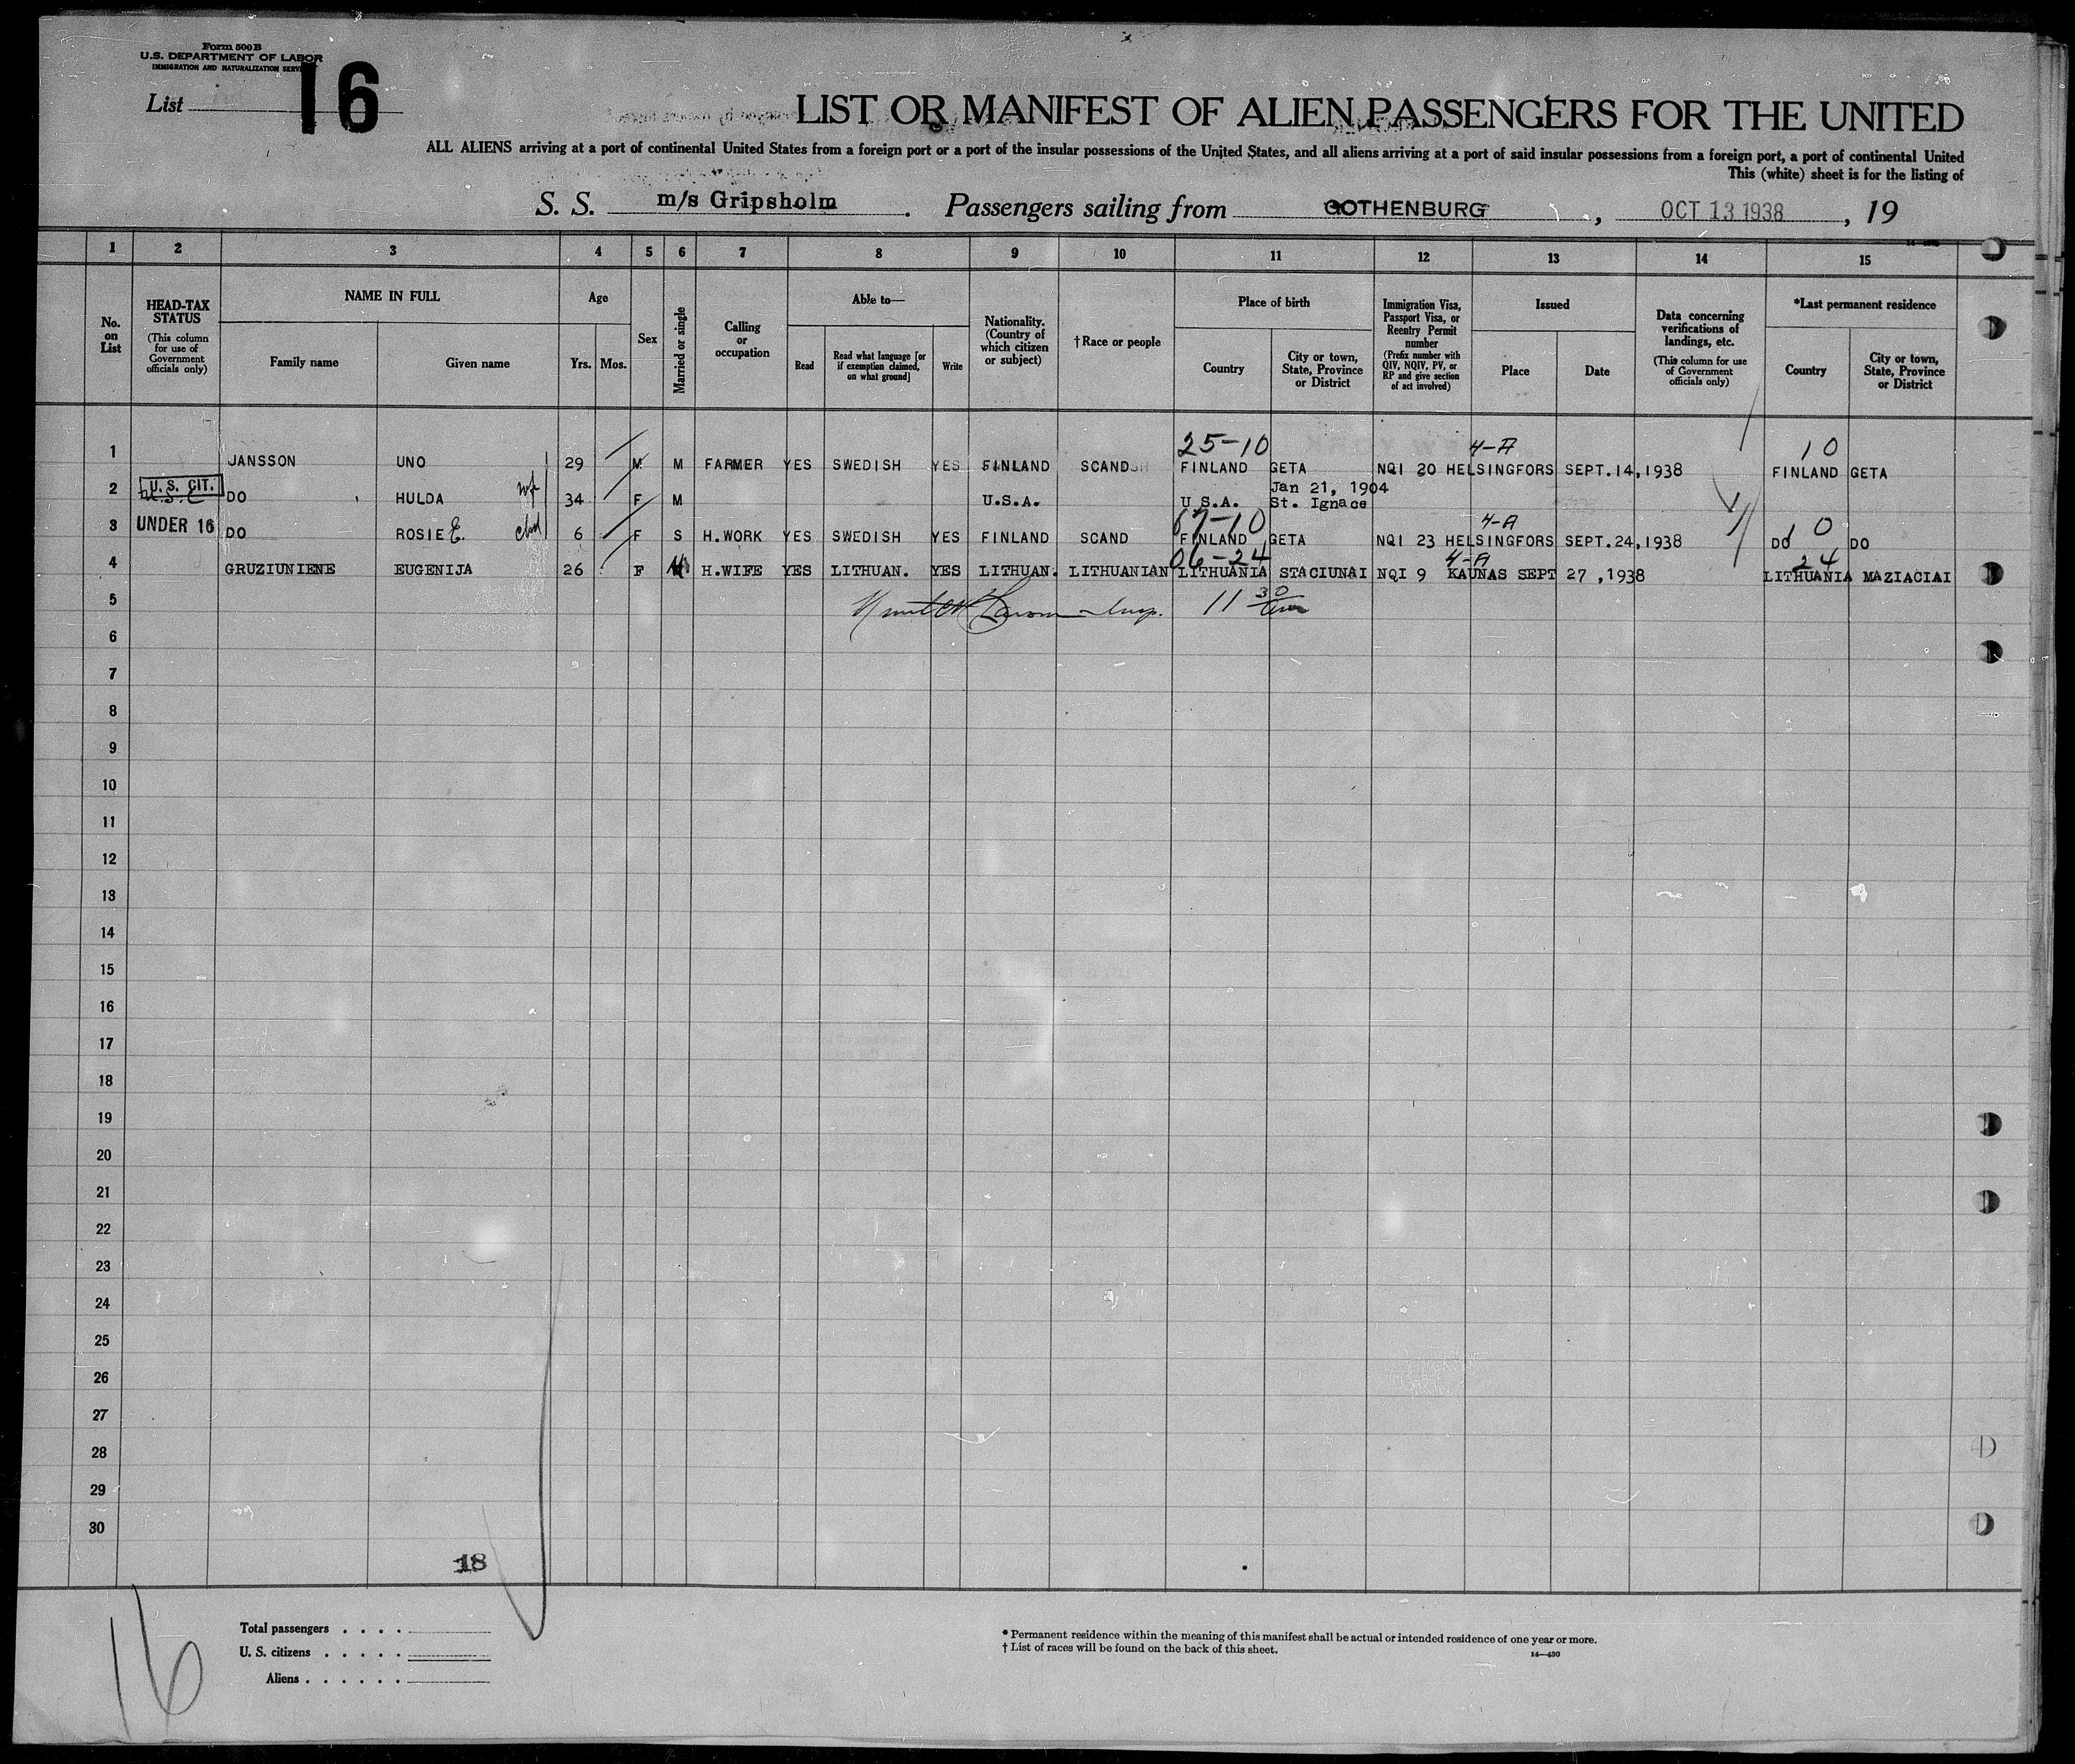 Form 500 B
U.S. DEPARTMENT OF LABOR
IMMIGRATION AND NATURALIZATION SERVICE
List 16
LIST OR MANIFEST OF ALIEN PASSENGERS FOR THE UNITED
ALL ALIENS arriving at a port of continental United States from a foreign port or a port of the insular possessions of the United States, and all aliens arriving at a port of said insular possessions from a foreign port, a port of continental United
This (white) sheet is for the listing of
S. S. m/s Gripsholm . Passengers sailing from GOTHENBURG , OCT 13 1938 , 19
1 2 3 4 5 6 7 8 9 10 11 12 13 14 15
No. on List
HEAD-TAX STATUS
(This column for use of Government officials only)
NAME IN FULL
Family name
Given name
Age
Yrs. Mos.
Sex
Married or single
Calling or occupation
Able to—
Read
Read what language [or if exemption claimed, on what ground]
Write
Nationality. (Country of which citizen or subject)
†Race or people
Place of birth
Country
City or town, State, Province or District
Immigration Visa, Passport Visa, or Reentry Permit number
(Prefix number with QIV, NQIV, PV, or RP and give section of act involved)
Issued
Place
Date
Data concerning verifications of landings, etc.
(This column for use of Government officials only)
*Last permanent residence
Country
City or town, State, Province or District
25-10 4-A 10
1 JANSSON UNO 29 M M FARMER YES SWEDISH YES FINLAND SCAND FINLAND GETA NQI 20 HELSINGFORS SEPT.14,1938 FINLAND GETA
U. S. CIT. Jan 21, 1904
2 DO HULDA wf 34 F M U.S.A. U.S.A. St. Ignace
67-10 4-A 10
3 UNDER 16 DO ROSIE E. chd 6 F S H.WORK YES SWEDISH YES FINLAND SCAND FINLAND GETA NQI 23 HELSINGFORS SEPT.24,1938 DO DO
06-24 4-A 24
4 GRUZIUNIENE EUGENIJA 26 F M H.WIFE YES LITHUAN. YES LITHUAN. LITHUANIAN LITHUANIA STACIUNAI NQI 9 KAUNAS SEPT 27 ,1938 LITHUANIA MAZIACIAI
5 Insp. 11 30
6
7
8
9
10
11
12
13
14
15
16
17
18
19
20
21
22
23
24
25
26
27
28
29
30
18
16
Total passengers . . . .
U. S. citizens . . . . .
Aliens . . . . . .
* Permanent residence within the meaning of this manifest shall be actual or intended residence of one year or more.
† List of races will be found on the back of this sheet.
14—430